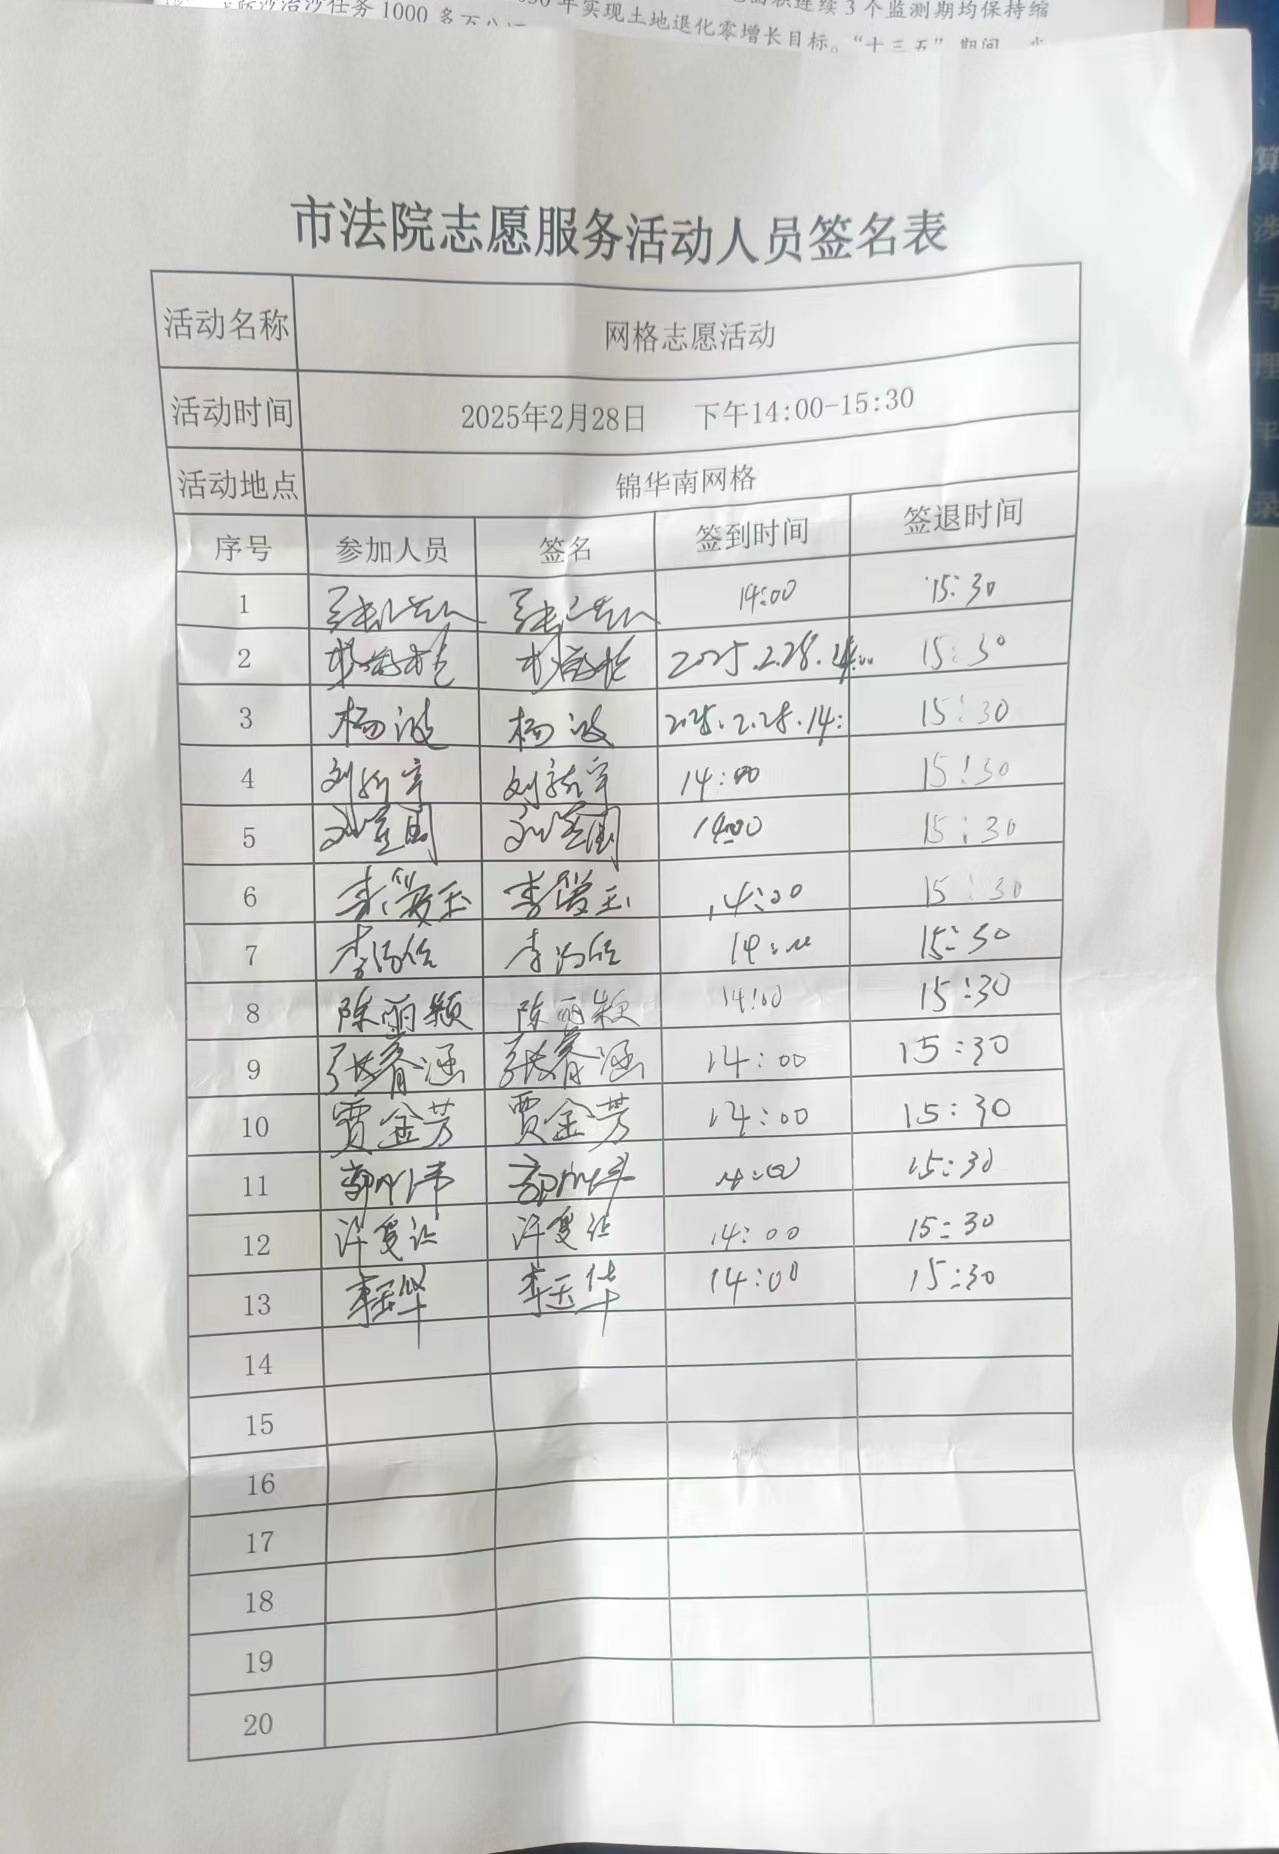 治沙任务1000多万公
年实现土地退化零增长目标。“十三五”期间
面积连续3个监测期均保持缩
市法院志愿服务活动人员签名表
活动名称 网格志愿活动
活动时间 2025年2月28日 下午14:00-15:30
活动地点 锦华南网格
序号 参加人员 签名 签到时间 签退时间
1 14:00 15:30
2 2025.2.28.14:00 15:30
3 杨波 杨波 2025.2.28.14: 15:30
4 14:00 15:30
5 14:00 15:30
6 14:00 15:30
7 14:00 15:30
8 陈丽颖 陈丽颖 14:00 15:30
9 张春涵 张春涵 14:00 15:30
10 贾金芳 贾金芳 14:00 15:30
11 14:00 15:30
12 14:00 15:30
13 李玉华 李玉华 14:00 15:30
14
15
16
17
18
19
20
算
涉
与
理
平
录